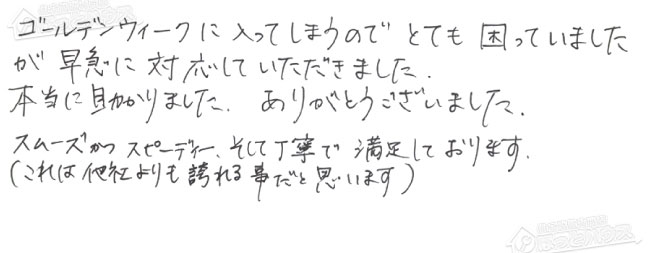 ゴールデンウィークに入ってしまうのでとても困っていました
が早急に対応していただきました.
本当に助かりました. ありがとうございました.
スムーズかつスピーディー、そして丁寧で満足しております.
(これは他社よりも誇れる事だと思います)